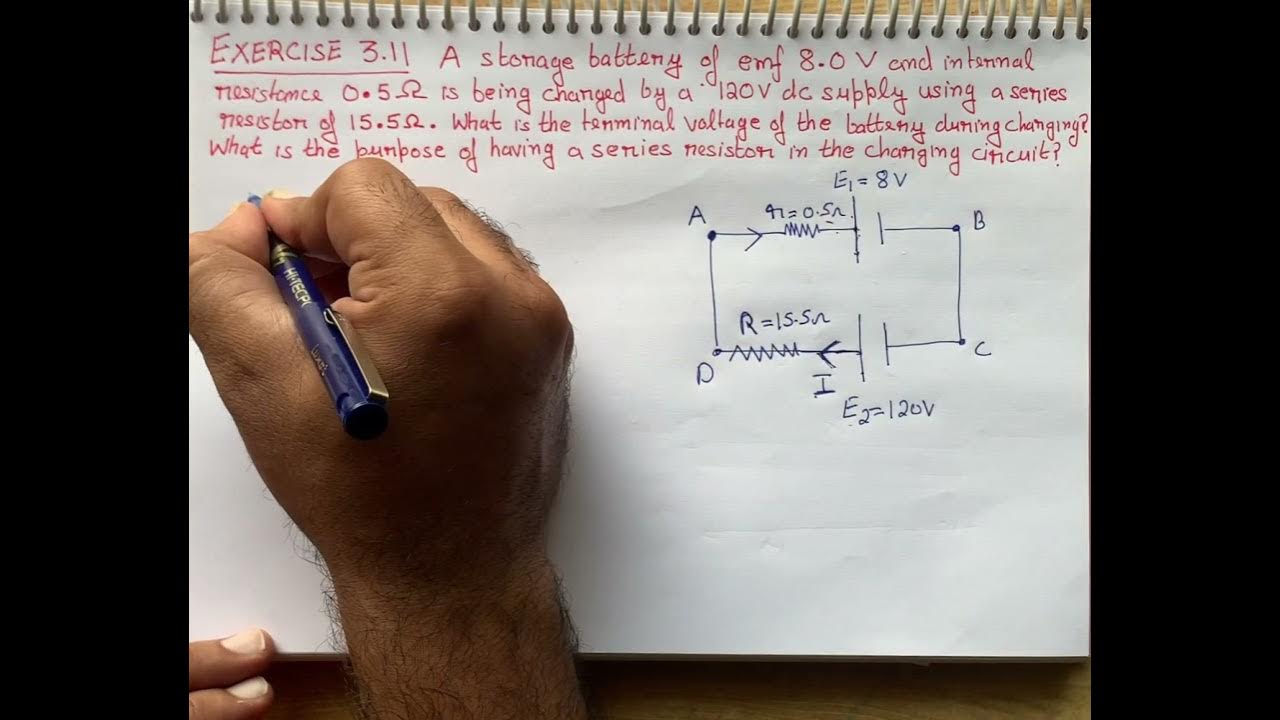 EXERCISE 3.11 A storage battery of emf 8.0 V and internal
resistance 0.5Ω is being charged by a 120V dc supply using a series
resistor of 15.5Ω. What is the terminal voltage of the battery during charging?
What is the purpose of having a series resistor in the charging circuit?
E₁ = 8V
A r=0.5Ω B
R=15.5Ω
D I C
E₂=120V
HI-TECPO
Luxor